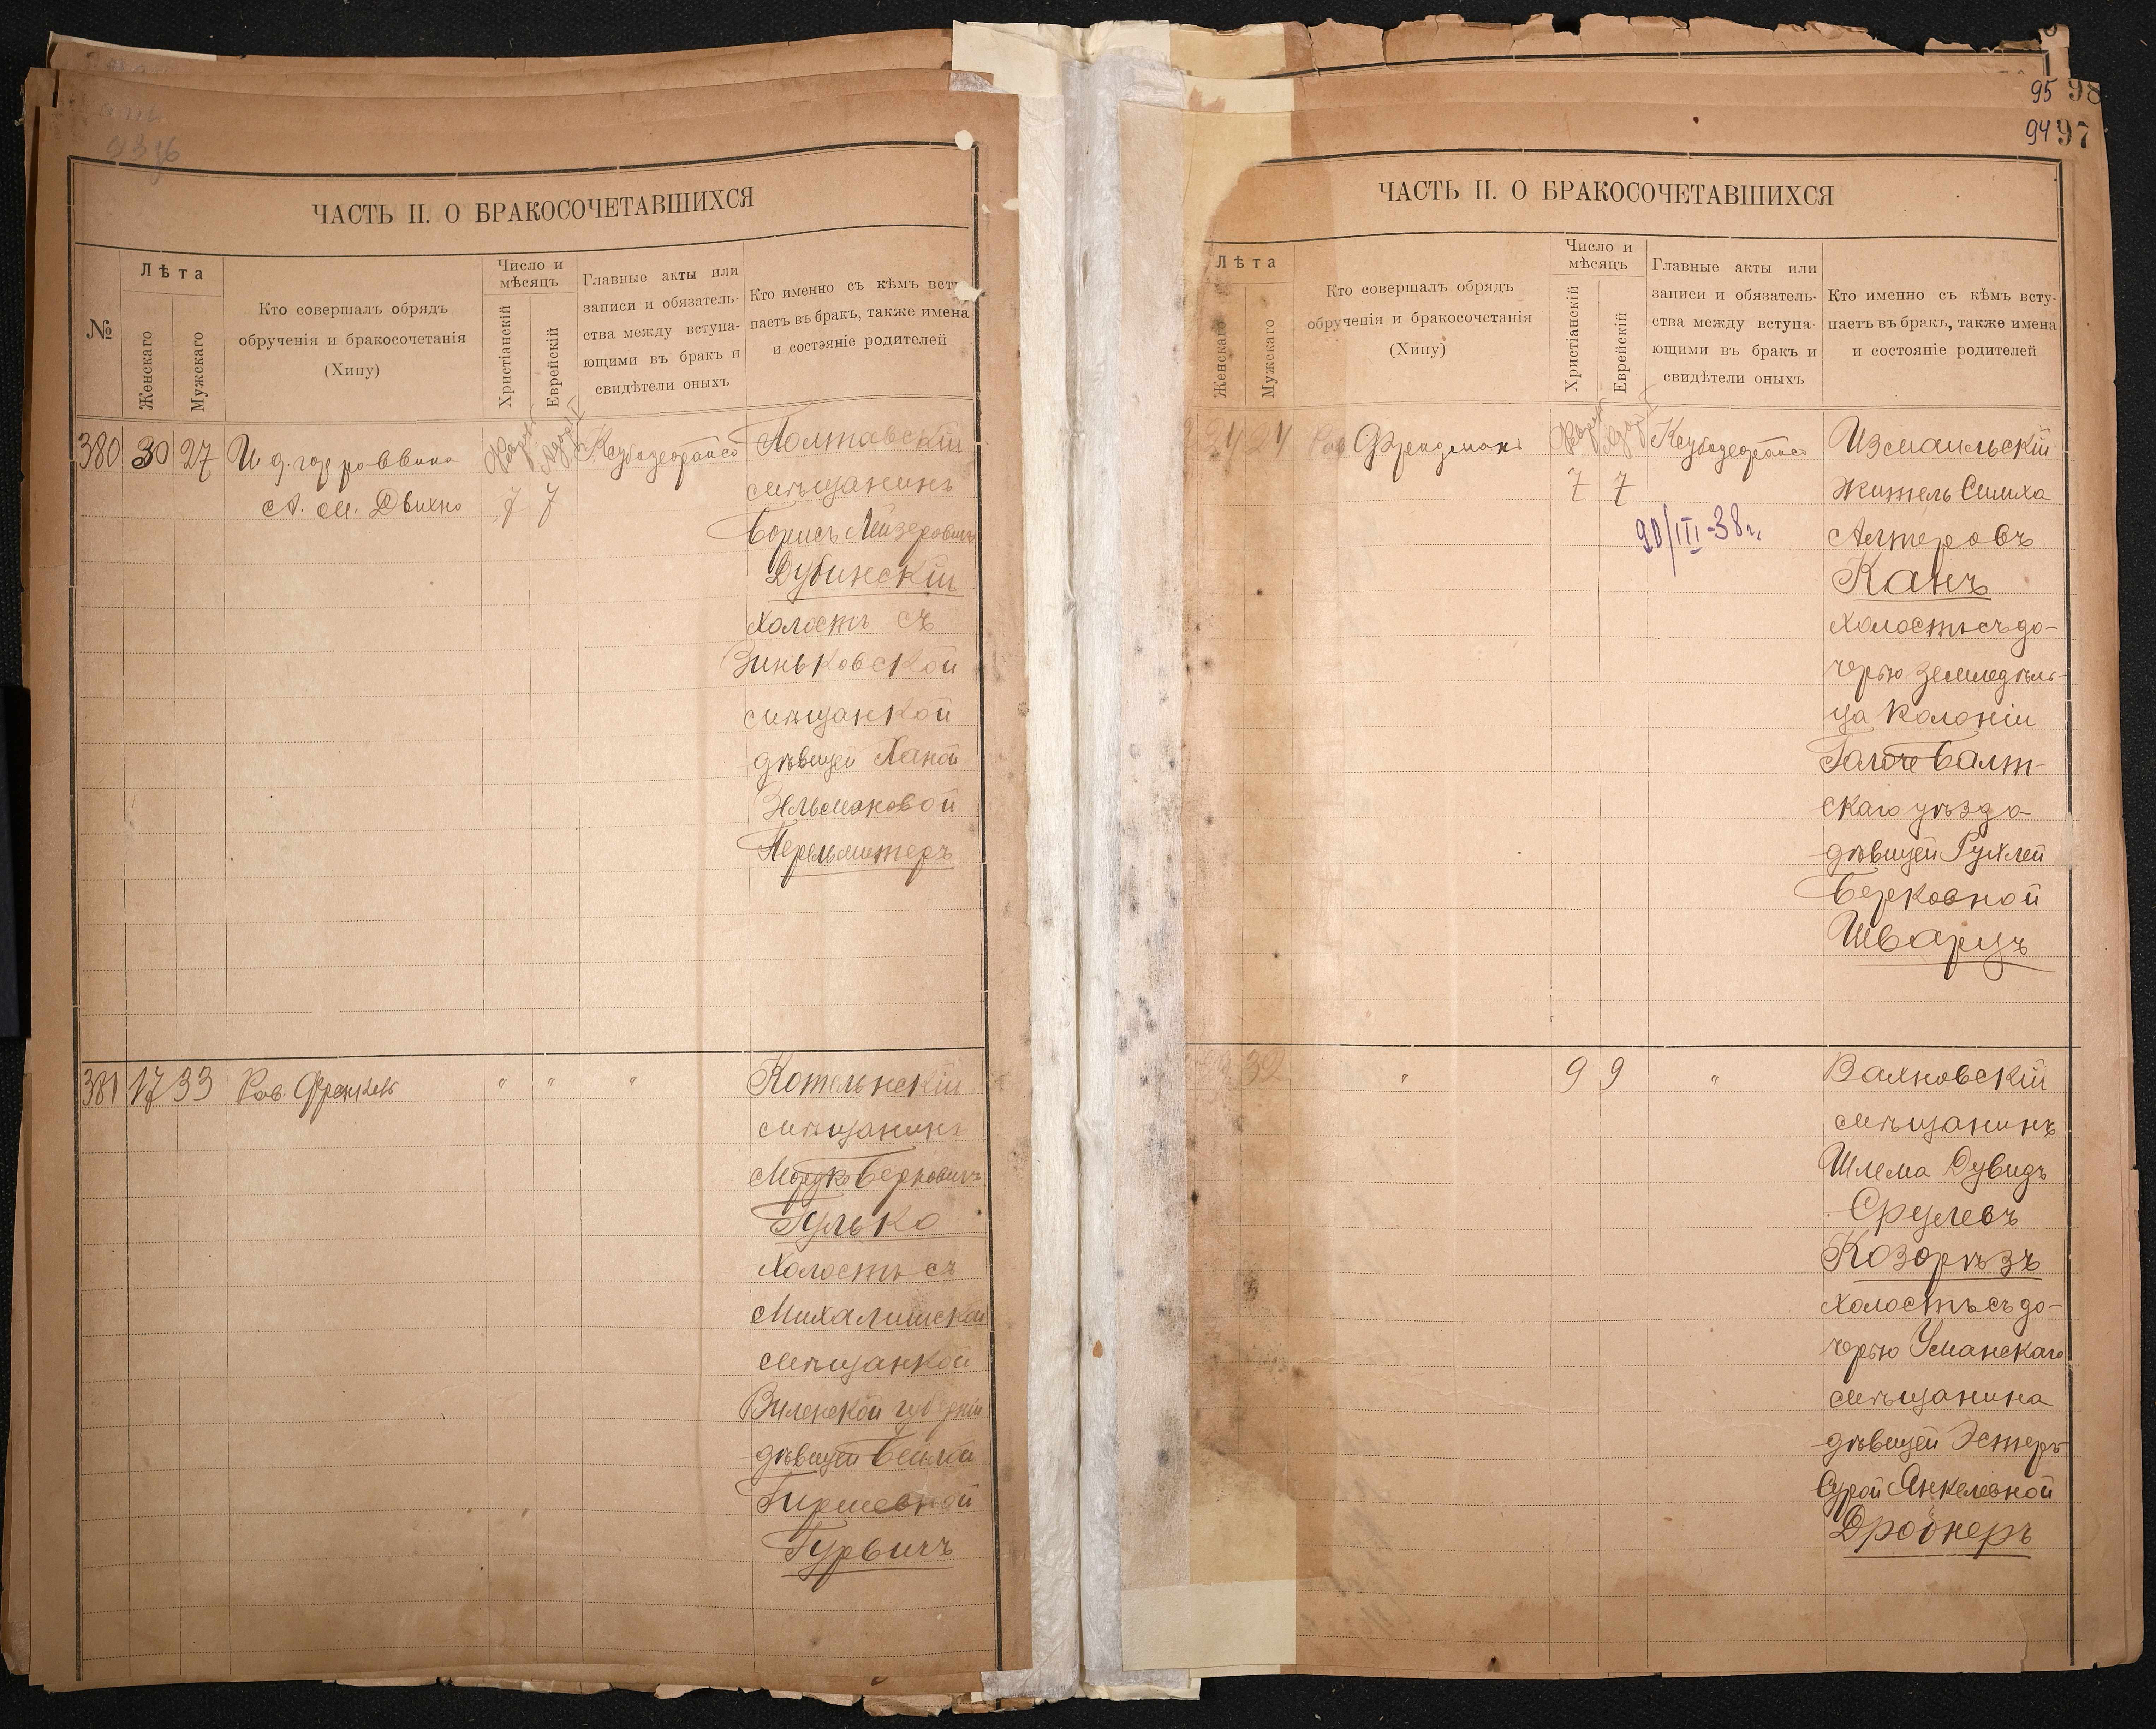 95 98
94 97
ЧАСТЬ II. О БРАКОСОЧЕТАВШИХСЯ
№
Лѣта
Женскаго
Мужскаго
Кто совершалъ обрядъ
обрученія и бракосочетанія
(Хипу)
Число и
мѣсяцъ
Христіанскій
Еврейскій
Главные акты или
записи и обязатель-
ства между вступа-
ющими въ бракъ и
свидѣтели оныхъ
Кто именно съ кѣмъ всту
паетъ въ бракъ, также имена
и состояніе родителей
380 30 27 И. д. гор. раввина
А. М. Двихно
7 7
Полтавскій
мѣщанинъ
Борисъ Лейзеровичъ
Дубинскій
холостъ съ
Зиньковской
мѣщанкой
дѣвицей Ханой
Зельмановой
Перельмитеръ
381 17 33 Рав. Френкель " " "
Котельнскій
мѣщанинъ
Мордко Берковичъ
Гулько
холостъ съ
Михалишской
мѣщанкой
Виленской губерніи
дѣвицей Бейла
Гиршевной
Гурвичъ
ЧАСТЬ II. О БРАКОСОЧЕТАВШИХСЯ
Лѣта
Женскаго
Мужскаго
Кто совершалъ обрядъ
обрученія и бракосочетанія
(Хипу)
Число и
мѣсяцъ
Христіанскій
Еврейскій
Главные акты или
записи и обязатель-
ства между вступа
ющими въ бракъ и
свидѣтели оныхъ
Кто именно съ кѣмъ всту-
паетъ въ бракъ, также имена
и состояніе родителей
24 24 Рав.
7 7
20/III-38 г.
Измаильскій
житель Симха
Алтеровъ
Канъ
холостъ съ до-
черью земледѣль-
ца колоніи
Балт-
скаго уѣзда
дѣвицей Рухлей
Берковной
Шварцъ
32 " 9 9 "
Вахновскій
мѣщанинъ
Шлема Дувидъ
Срулевъ
Козорѣзъ
холостъ съ до-
черью Уманскаго
мѣщанина
дѣвицей Эстеръ
Сурой Янкелевной
Дройнеръ